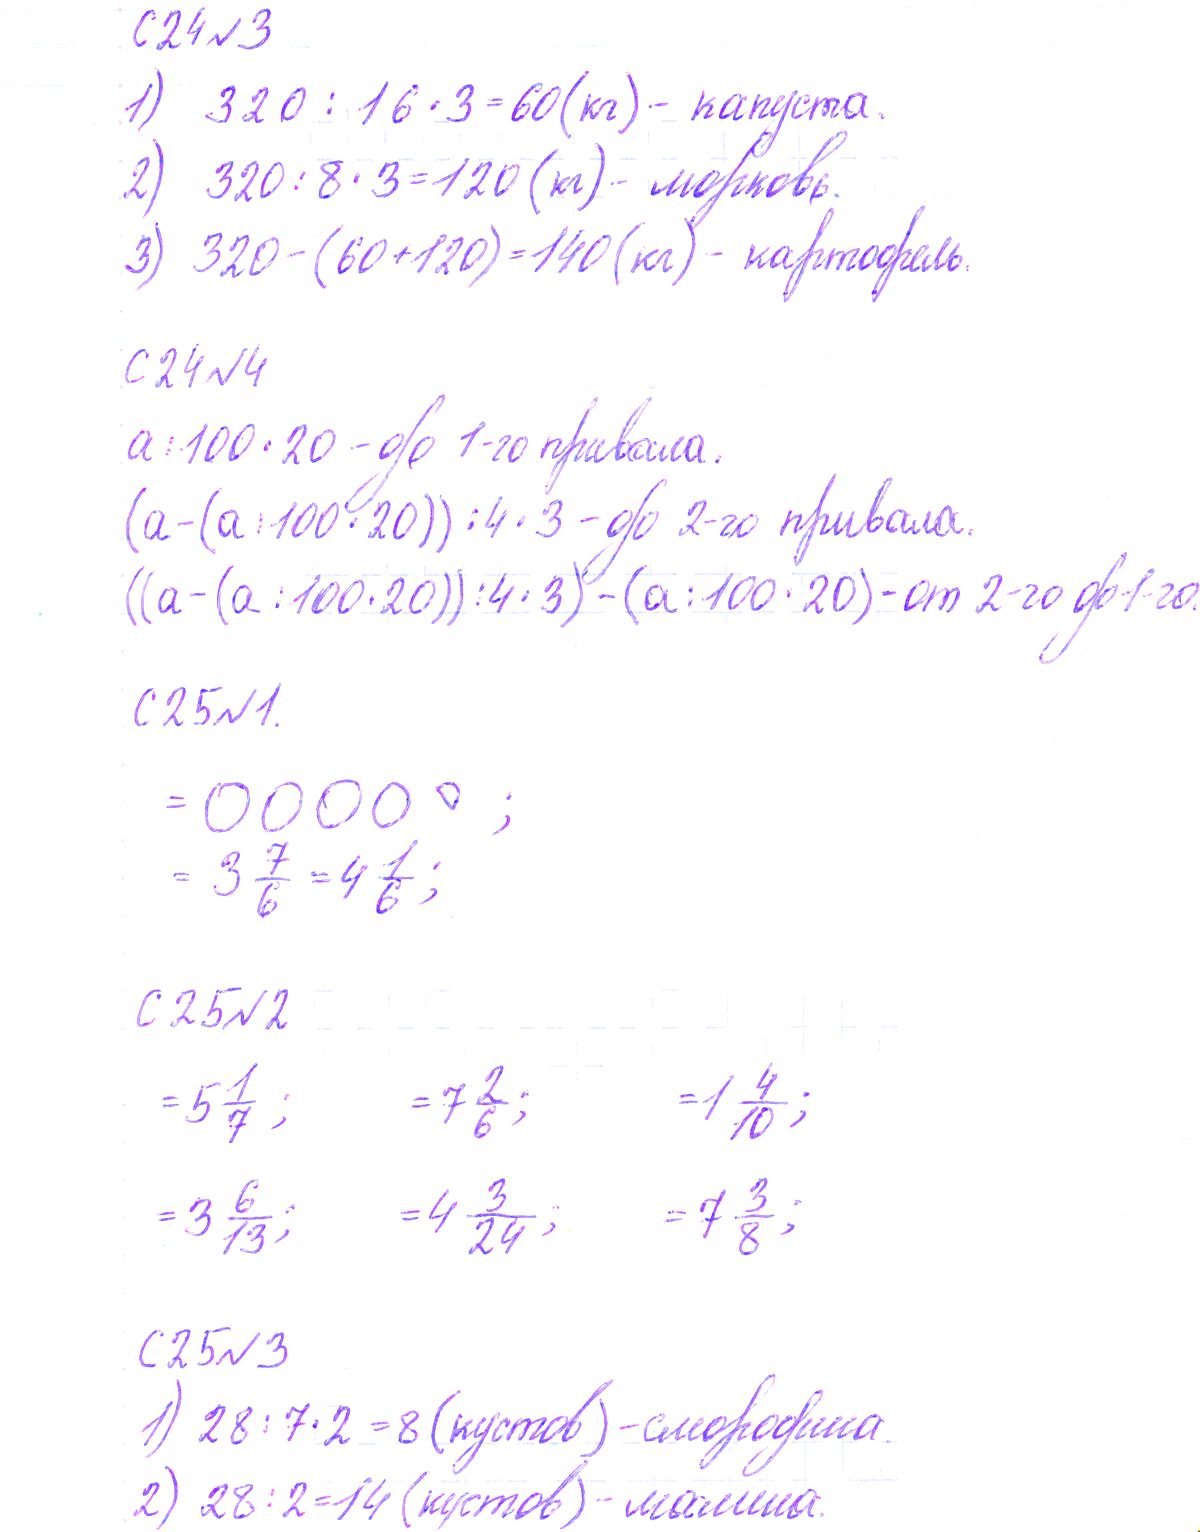 С24№3
1) 320 : 16 · 3 = 60 (кг) - капуста.
2) 320 : 8 · 3 = 120 (кг) - морковь.
3) 320 - (60 + 120) = 140 (кг) - картофель.
С24№4
а : 100 · 20 - до 1-го привала.
(а - (а : 100 · 20)) : 4 · 3 - до 2-го привала.
((а - (а : 100 · 20)) : 4 · 3) - (а : 100 · 20) - от 2-го до 1-го.
С25№1.
= ;
= 3 7/6 = 4 1/6 ;
С25№2
= 5 1/7 ; = 7 2/6 ; = 1 4/10 ;
= 3 6/13 ; = 4 3/24 ; = 7 3/8 ;
С25№3
1) 28 : 7 · 2 = 8 (кустов) - смородина.
2) 28 : 2 = 14 (кустов) - малина.